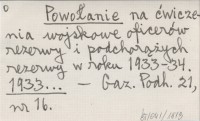 Powołanie na ćwicze-
nia wojskowe oficerów
rezerwy i podchorążych
rezerwy w roku 1933-34.
1933... — Gaz. Podh. 21,
nr 16.